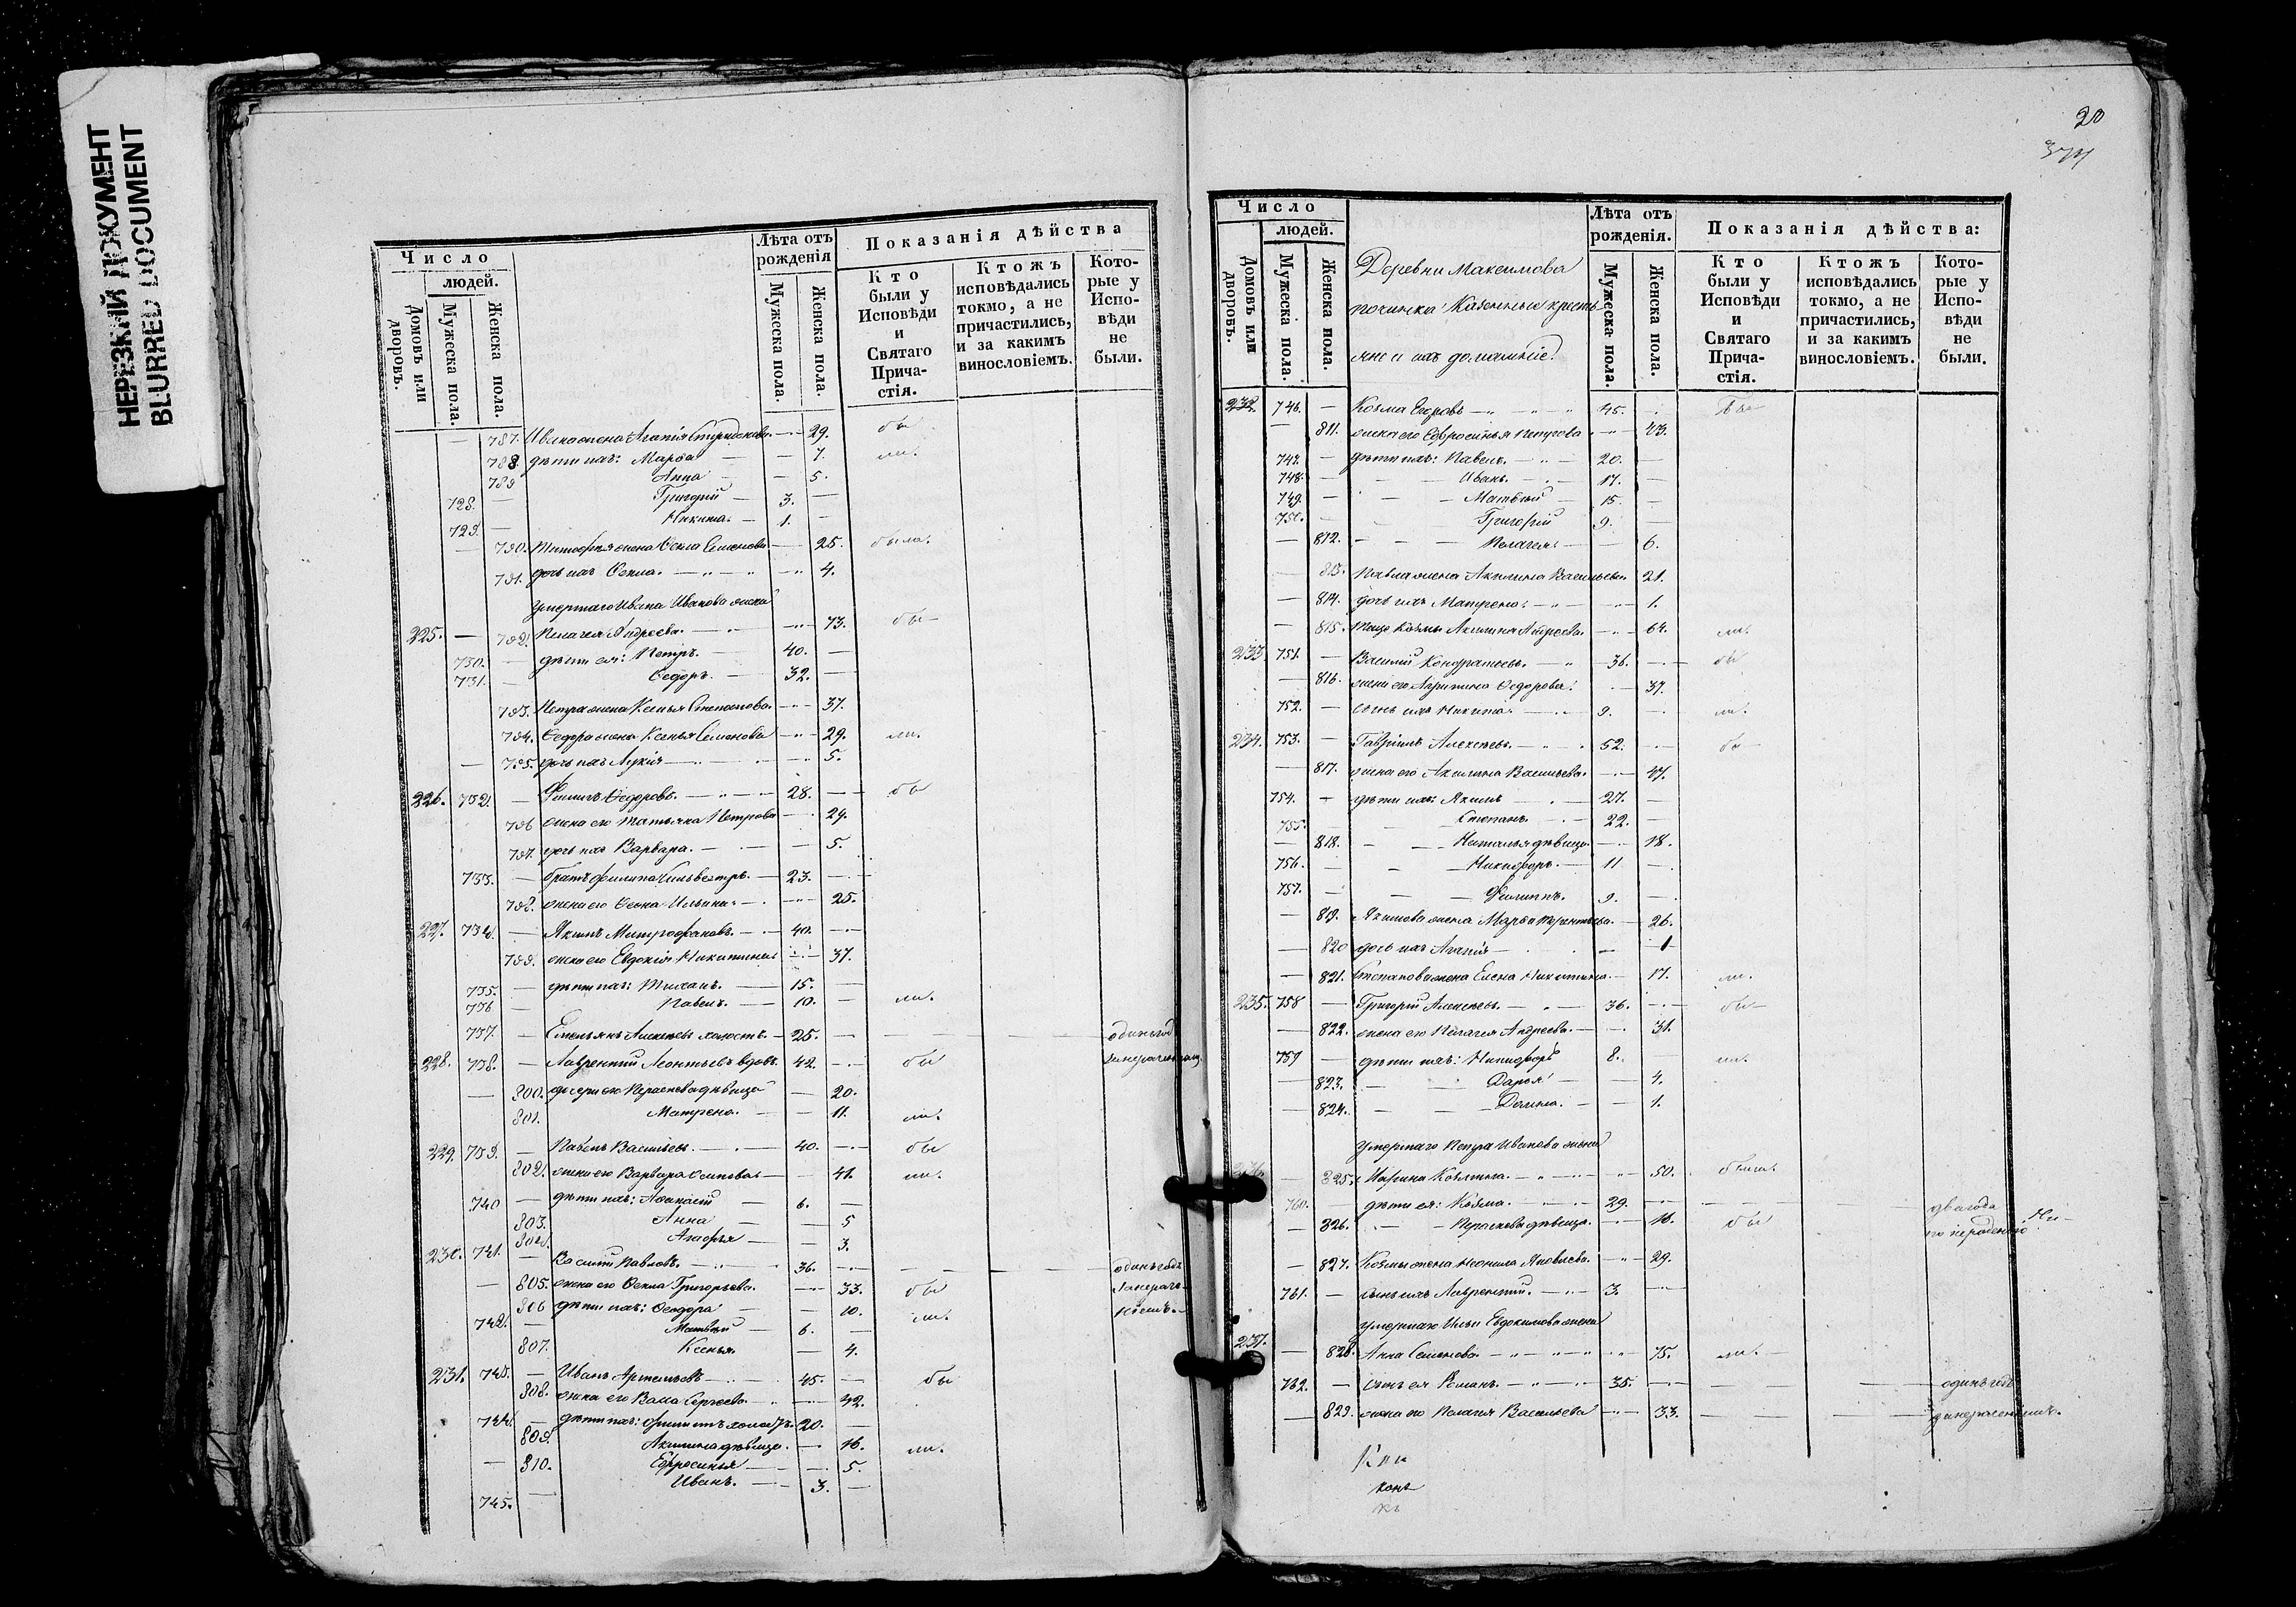 НЕРЕЗКИЙ ДОКУМЕНТ
BLURRED DOCUMENT
Число
людей.
Домовъ или дворовъ.
Мужеска пола.
Женска пола.
Лѣта отъ рожденія
Мужеска пола.
Женска пола.
Показанія дѣйства
Кто были у Исповѣди и Святаго Прича-стія.
Ктожъ исповѣдались токмо, а не причастились, и за какимъ винословіемъ.
Кото-рые у Испо-вѣди не были.
787. Ивана жена Агапія Спиридонова 29. бы
788. дѣти ихъ: Марѳа 7. ли.
789 Анна 5.
728. Григорій 3.
729. Никита. 1.
790. жена Ѳекла Семенова 25. была.
791. дочь ихъ Ѳекла. 4.
умершаго Ивана Иванова жена
225. 792. Пелагея Андреева. 73. бы
730. дѣти ея: Петръ. 40.
731. Ѳедоръ. 32.
793. Петра жена Ксенья Степанова. 37.
794. Ѳедора жена Ксенья Семенова 29. ли.
795. дочь ихъ Лукія 5.
226. 732. Филипъ Ѳедоровъ. 28. бы
796 жена его Татьяна Петрова 29.
797. дочь ихъ Варвара. 5.
733. братъ Филипа Сильвестръ. 23.
798. жена его Ѳекла Ильина. 25.
227. 734. Якимъ Митрофановъ. 40.
799. жена его Евдокія Никитина 37.
735. дѣти ихъ: Тихонъ. 15.
736 Павелъ. 10. ли.
737. Емельянъ Алексѣевъ холостъ. 25. одинъ год
228. 738. Лаврентій Леонтьевъ вдовъ. 42. бы
800. дочери его Парасковья дѣвица 20.
801. Матрена. 11. ли.
229. 739. Павелъ Васильевъ. 40. бы
802. жена его Варвара Осипова 41. ли.
740 дѣти ихъ: Аѳанасій 6.
803. Анна 5
804. Агафья 3.
230. 741. Василій Павловъ. 36. одинъ годъ
805. жена его Ѳекла Григорьева. 33. бы
806 дѣти ихъ: Ѳеодора 10. ли.
742. Матвѣй 6.
807. Ксенья. 4.
231. 743. Иванъ Артемьевъ 45. бы
808. жена его Васса Сергеева. 42.
744. дѣти ихъ: Филиппъ холостъ. 20.
809. Акилина дѣвица. 16. ли.
810. Ефросинья 5.
745. Иванъ. 3.
20
374
Число
людей.
Домовъ или дворовъ.
Мужеска пола.
Женска пола.
Деревни Максимова
починка Казенные кресть-
яне и ихъ домашніе.
Лѣта отъ рожденія.
Мужеска пола.
Женска пола.
Показанія дѣйства:
Кто были у Исповѣди и Святаго Прича-стія.
Ктожъ исповѣдались токмо, а не причастились, и за какимъ винословіемъ.
Кото-рые у Испо-вѣди не были.
232. 746. Козма Егоровъ 45. Бы
811. жена его Ефросинья Петрова 43.
747. дѣти ихъ: Павелъ. 20.
748. Иванъ. 17.
749. Матвѣй 15.
750. Григорій 9.
812. Пелагея. 6.
813. Павла жена Акилина Васильева. 21.
814. дочь ихъ Матрена. 1.
815. теща Козмы Акилина Андреева. 64. ли.
233. 751. Василій Кондратьевъ. 36. бы
816. жена его Агрипина Ѳедорова. 37.
752. сынъ ихъ Никита. 9. ли.
234. 753. Гавріилъ Алексѣевъ. 52. бы
817. жена его Акилина Васильева. 47.
754. дѣти ихъ: Якимъ 27.
755. Степанъ. 22.
818. Наталья дѣвица. 18.
756. Никифоръ. 11
757. Филиппъ. 9.
819. Якимова жена Марѳа Терентьева. 26.
820 дочь ихъ Агапія 1
821. Степанова жена Елена Никитина. 17. ли.
235. 758 Григорій Алексѣевъ. 36. бы
822. жена его Пелагея Андреева. 31.
759 дѣти ихъ: Никифоръ 8. ли.
823. Дарья 4.
824. Домна. 1.
умершаго Петра Иванова жена
236. 825. Марина Козмина. 50. была.
760. дѣти ея: Козма. 29. два года
826. Парасковья дѣвица. 16. бы по нераденію
827. Козмы жена Неонила Яковлева. 29.
761. сынъ ихъ Лаврентій. 3.
умершаго Ильи Евдокимова жена
237. 828. Анна Семенова. 75. ли.
762. сынъ ея Романъ. 35. одинъ годъ
829. жена его Пелагея Васильева 33. за нераченіемъ.